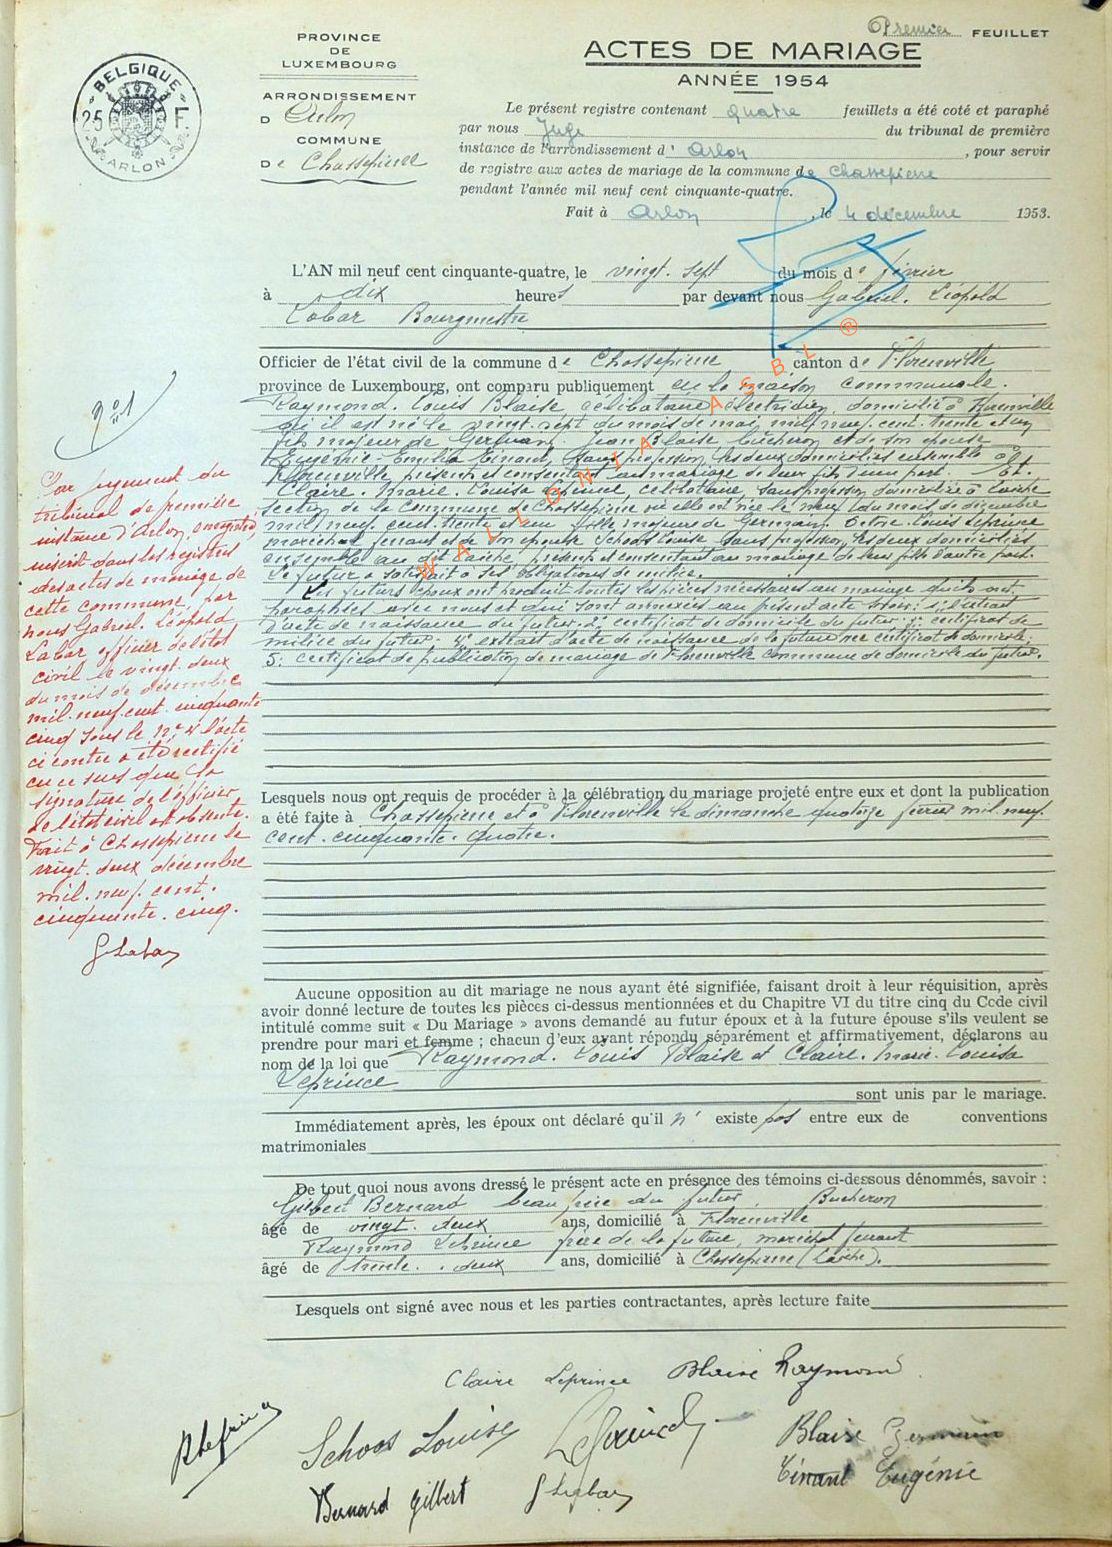 Premier FEUILLET
PROVINCE
DE
LUXEMBOURG
ARRONDISSEMENT
D' Arlon
COMMUNE
De Chassepierre
BELGIQUE
25 F
ARLON
ACTES DE MARIAGE
ANNÉE 1954
Le présent registre contenant quatre feuillets a été coté et paraphé
par nous Juge du tribunal de première
instance de l'arrondissement d' Arlon, pour servir
de registre aux actes de mariage de la commune de Chassepierre
pendant l'année mil neuf cent cinquante-quatre.
Fait à Arlon, le 4 décembre 1953.
L'AN mil neuf cent cinquante-quatre, le vingt-sept du mois de février
à dix heures par devant nous Gabriel. Léopold
Labar Bourgmestre
Officier de l'état civil de la commune de Chassepierre canton de Florenville
province de Luxembourg, ont comparu publiquement en la maison communale.
Raymond. Louis Blaise, célibataire électricien, domicilié à Florenville
où il est né le vingt-sept du mois de mai mil neuf cent trente et un
fils majeur de Germain. Jean Blaise bûcheron et de son épouse
Eugénie-Emilia Tinant, sans profession, les deux domiciliés ensemble à
Florenville présents et consentant au mariage de leur fils d'une part. Et.
Claire. Marie. Louisa Leprince, célibataire, sans profession domiciliée à Laiche
section de la commune de Chassepierre où elle est née le neuf du mois de décembre
mil neuf cent trente et un fille majeure de Germain. Louis Leprince
maréchal ferrant et de son épouse Schoos Louise sans profession, les deux domiciliés
ensemble au dit Laiche, présents et consentant au mariage de leur fille d'autre part.
Le futur a satisfait à ses obligations de milice.
Les futurs époux ont produit toutes les pièces nécessaires au mariage qu'ils ont
paraphées avec nous et qui sont annexées au présent acte savoir: 1: l'extrait
d'acte de naissance du futur. 2: certificat de domicile du futur 3: certificat de
milice du futur. 4: extrait d'acte de naissance de la future certificat de domicile.
5: certificat de publication de mariage de Florenville commune de domicile du futur.
N° 1
Par jugement du
tribunal de première
instance d'Arlon, enregistré,
inscrit dans les registres
des actes de mariage de
cette commune, par
nous Gabriel. Léopold
Labar officier de l'état
civil le vingt. deux
du mois de décembre
mil. neuf. cent. cinquante
cinq sous le n° 4 l'acte
ci contre a été rectifié
en ce sens que la
signature de l'officier
de l'état civil est absente.
Fait à Chassepierre le
vingt. deux décembre
mil. neuf. cent.
cinquante. cinq.
G Labar
Lesquels nous ont requis de procéder à la célébration du mariage projeté entre eux et dont la publication
a été faite à Chassepierre et à Florenville le dimanche quatorze février mil. neuf.
cent. cinquante. quatre.
Aucune opposition au dit mariage ne nous ayant été signifiée, faisant droit à leur réquisition, après
avoir donné lecture de toutes les pièces ci-dessus mentionnées et du Chapitre VI du titre cinq du Code civil
intitulé comme suit « Du Mariage » avons demandé au futur époux et à la future épouse s'ils veulent se
prendre pour mari et femme ; chacun d'eux ayant répondu séparément et affirmativement, déclarons au
nom de la loi que Raymond. Louis Blaise et Claire. Marie. Louisa
Leprince
sont unis par le mariage.
Immédiatement après, les époux ont déclaré qu'il n' existe pas entre eux de conventions
matrimoniales
De tout quoi nous avons dressé le présent acte en présence des témoins ci-dessous dénommés, savoir :
Gilbert Bernard beau frère du futur, Bucheron
âgé de vingt. deux ans, domicilié à Florenville
Raymond Leprince frère de la future, maréchal ferrant
âgé de trente. deux ans, domicilié à Chassepierre (Laiche).
Lesquels ont signé avec nous et les parties contractantes, après lecture faite
Claire Leprince Blaise Raymond
R Leprince Schoos Louise Leprince Blaise Germain
Bernard Gilbert G Labar Tinant Eugénie
WALLONIA ASBL ®